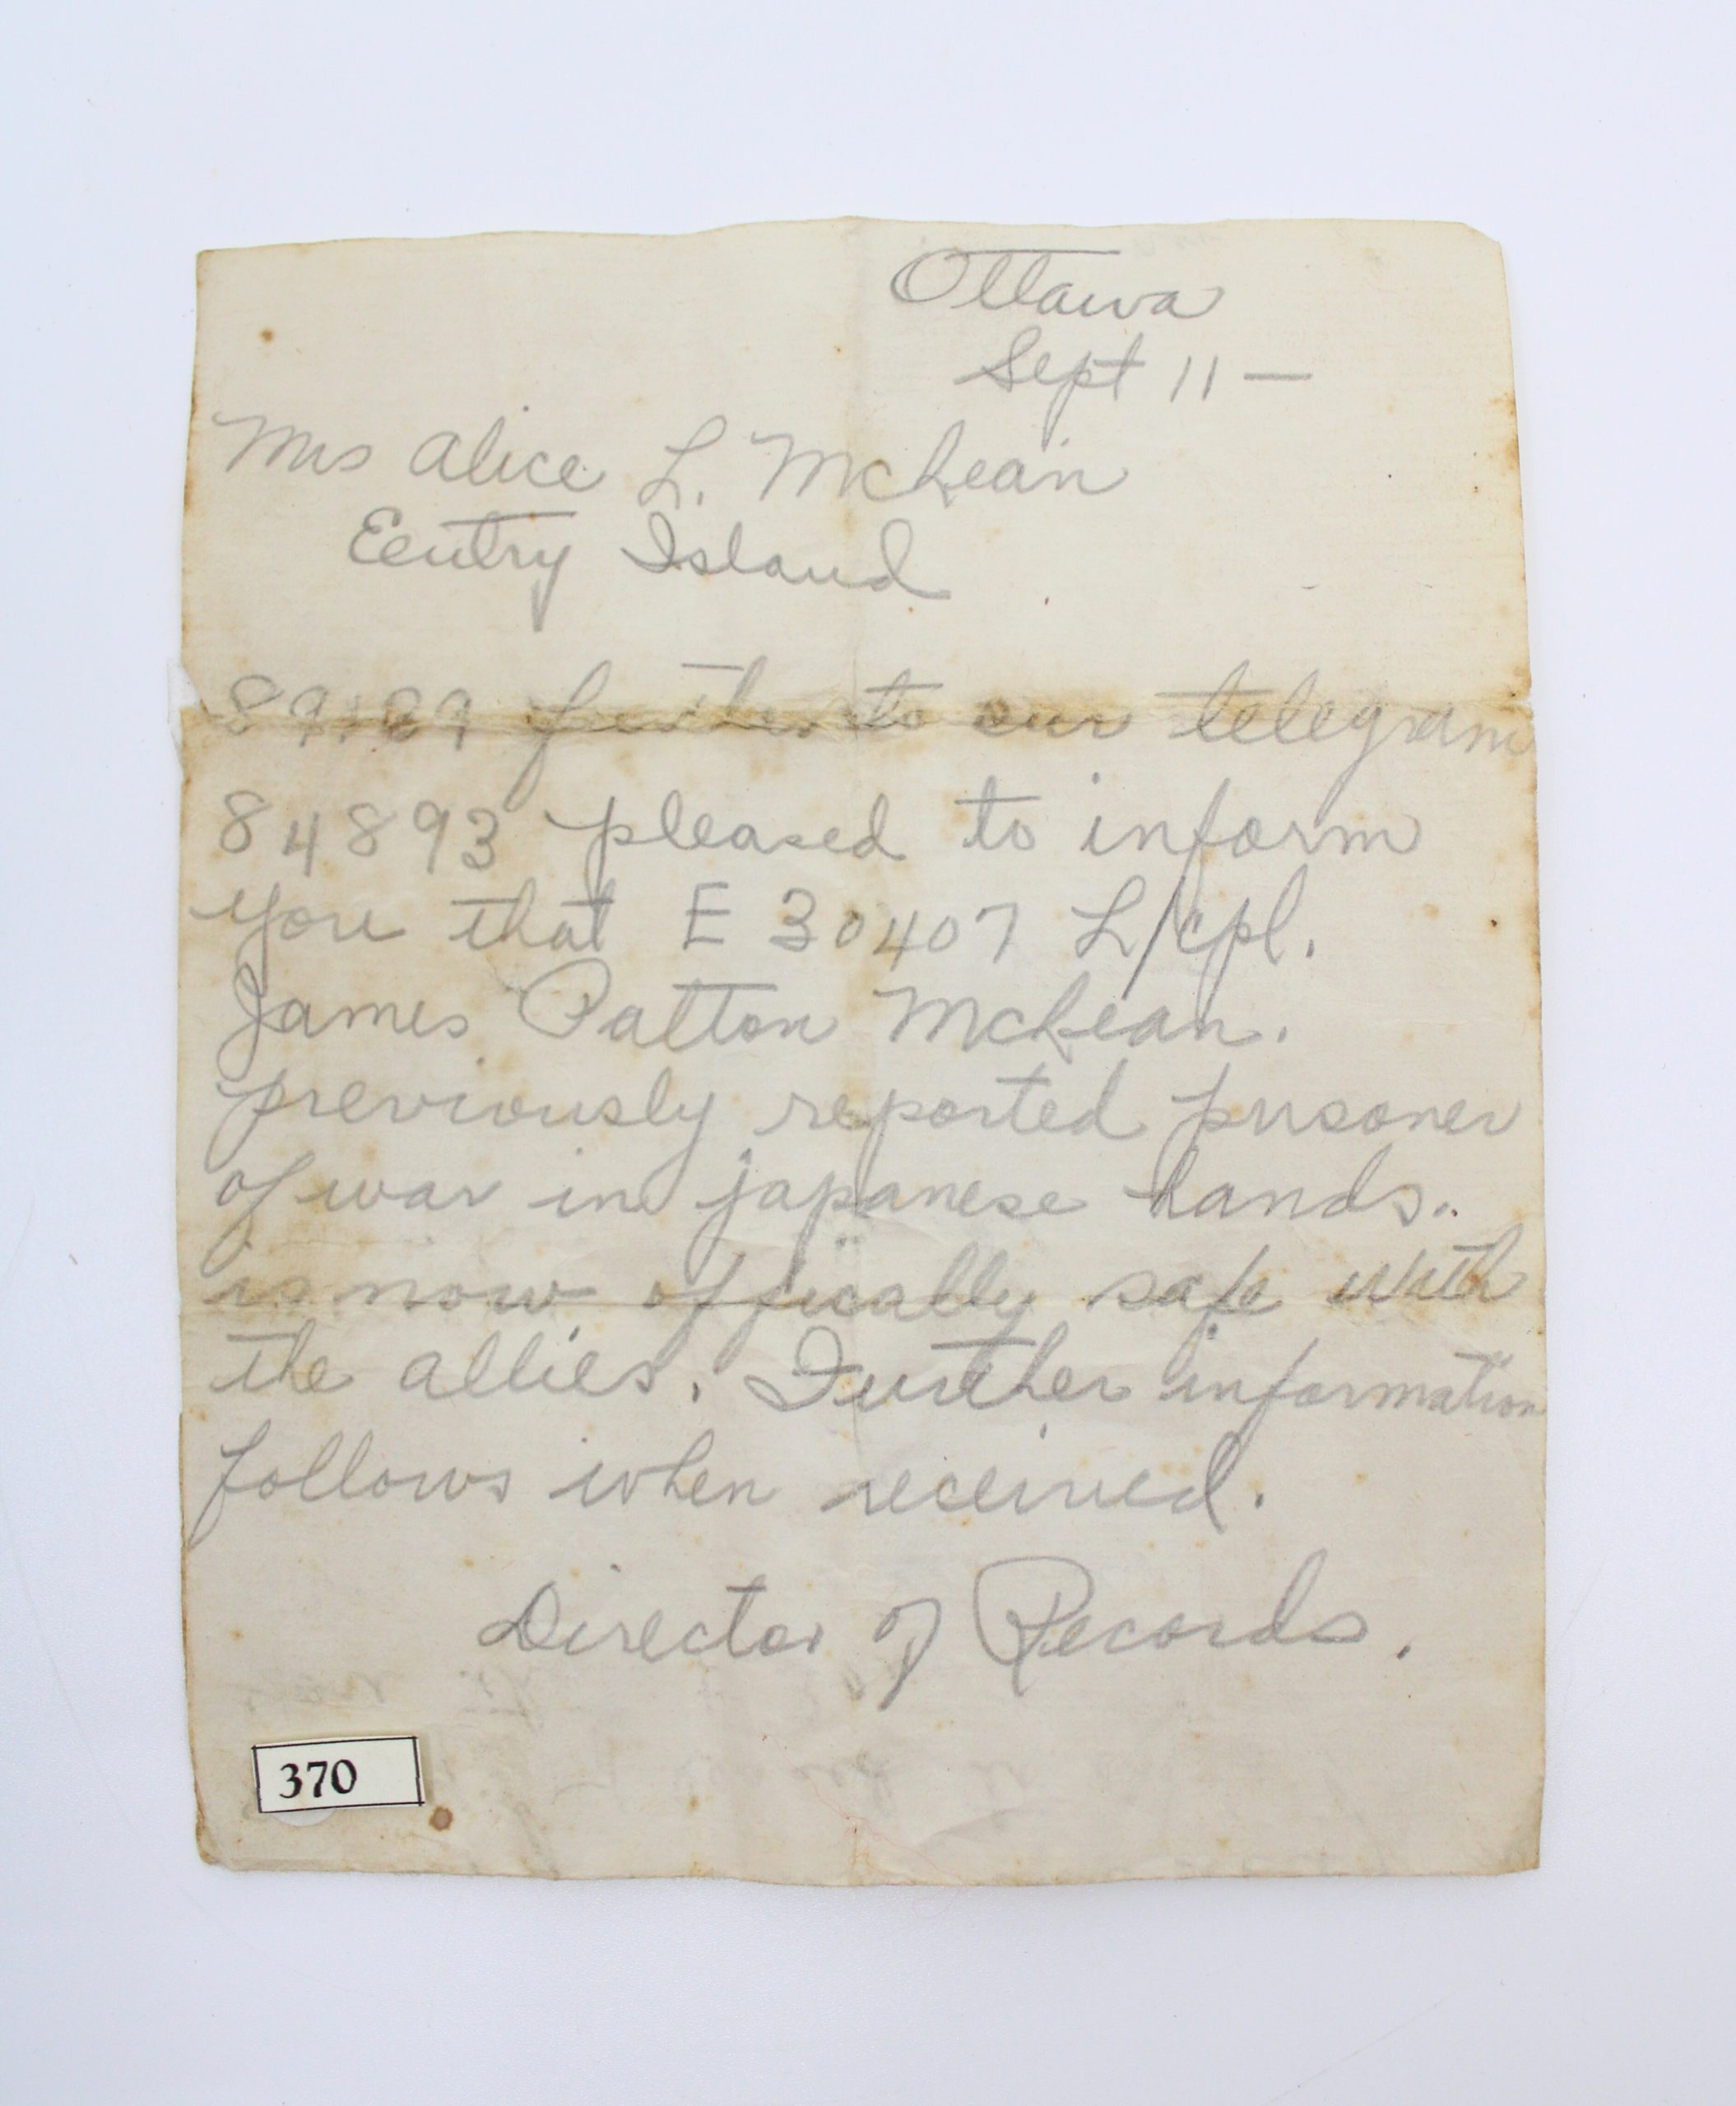 Ottawa
Sept 11 —
Mrs Alice L. McLean
Eentry Island
further to our telegram
84893 pleased to inform
you that E 30407 L/cpl.
James Patton McLean.
previously reported prisoner
of war in japanese hands.
is now offically safe with
the allies. Further information
follows when received.
Director of Records.
370